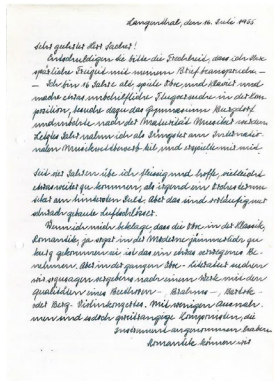 Langenthal, den 16. Juli 1955
Sehr geehrter Herr Sacher!
Entschuldigen sie bitte die Frechheit, dass ich Ihre
spärliche Freizeit mit meinem Brief beanspruche. –
– Ich bin 16 Jahre alt, spiele Oboe und Klavier und
mache etwas unbehilfliche Flugversuche in der Kom-
position, besuche dazu das Gymnasium Burgdorf
und möchte nach der Maturität Musiker werden.
Letztes Jahr nahm ich als Jüngster am Internatio-
nalen Musikwettbewerb teil, und erspielte mir mit
Seit vier Jahren übe ich fleissig und hoffe, vielleicht
etwas weiter zu kommen, als irgend ein Orchestermu-
siker am hintersten Pult. Aber das sind vorläufig nur
schwach gebaute Luftschlösser.
Wenn ich mich beklage, dass die Oboe in der Klassik,
Romantik, ja sogar in der Moderne jämmerlich zu
kurz gekommen sei ist das ein etwas verwegenes Be-
nehmen. Aber in der ganzen Oboe-Literatur suchen
wir sozusagen vergebens nach einem Werk mit den
qualitäten eines Beethoven-, Brahms-, Bartok-
oder Berg-Violinkonzertes. Mit wenigen Ausnah-
men sind es doch zweitrangige Komponisten, die
Instrument angenommen haben.
Romantik können wir